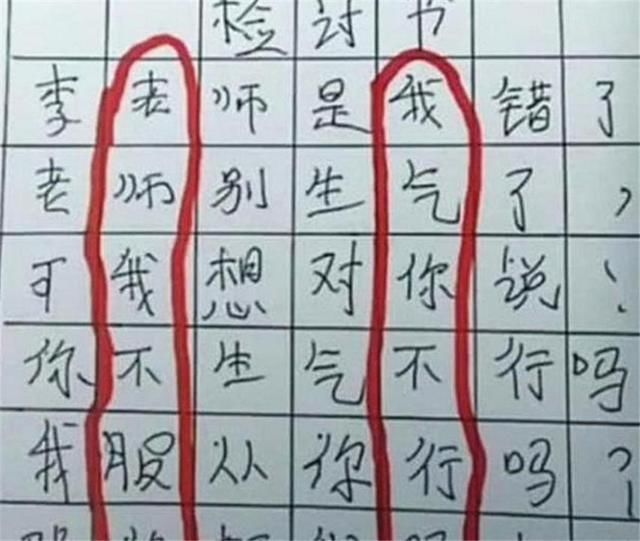 检讨书
李老师是我错了
老师别生气了，
可我想对你说！
你不生气不行吗
我股从你行吗？